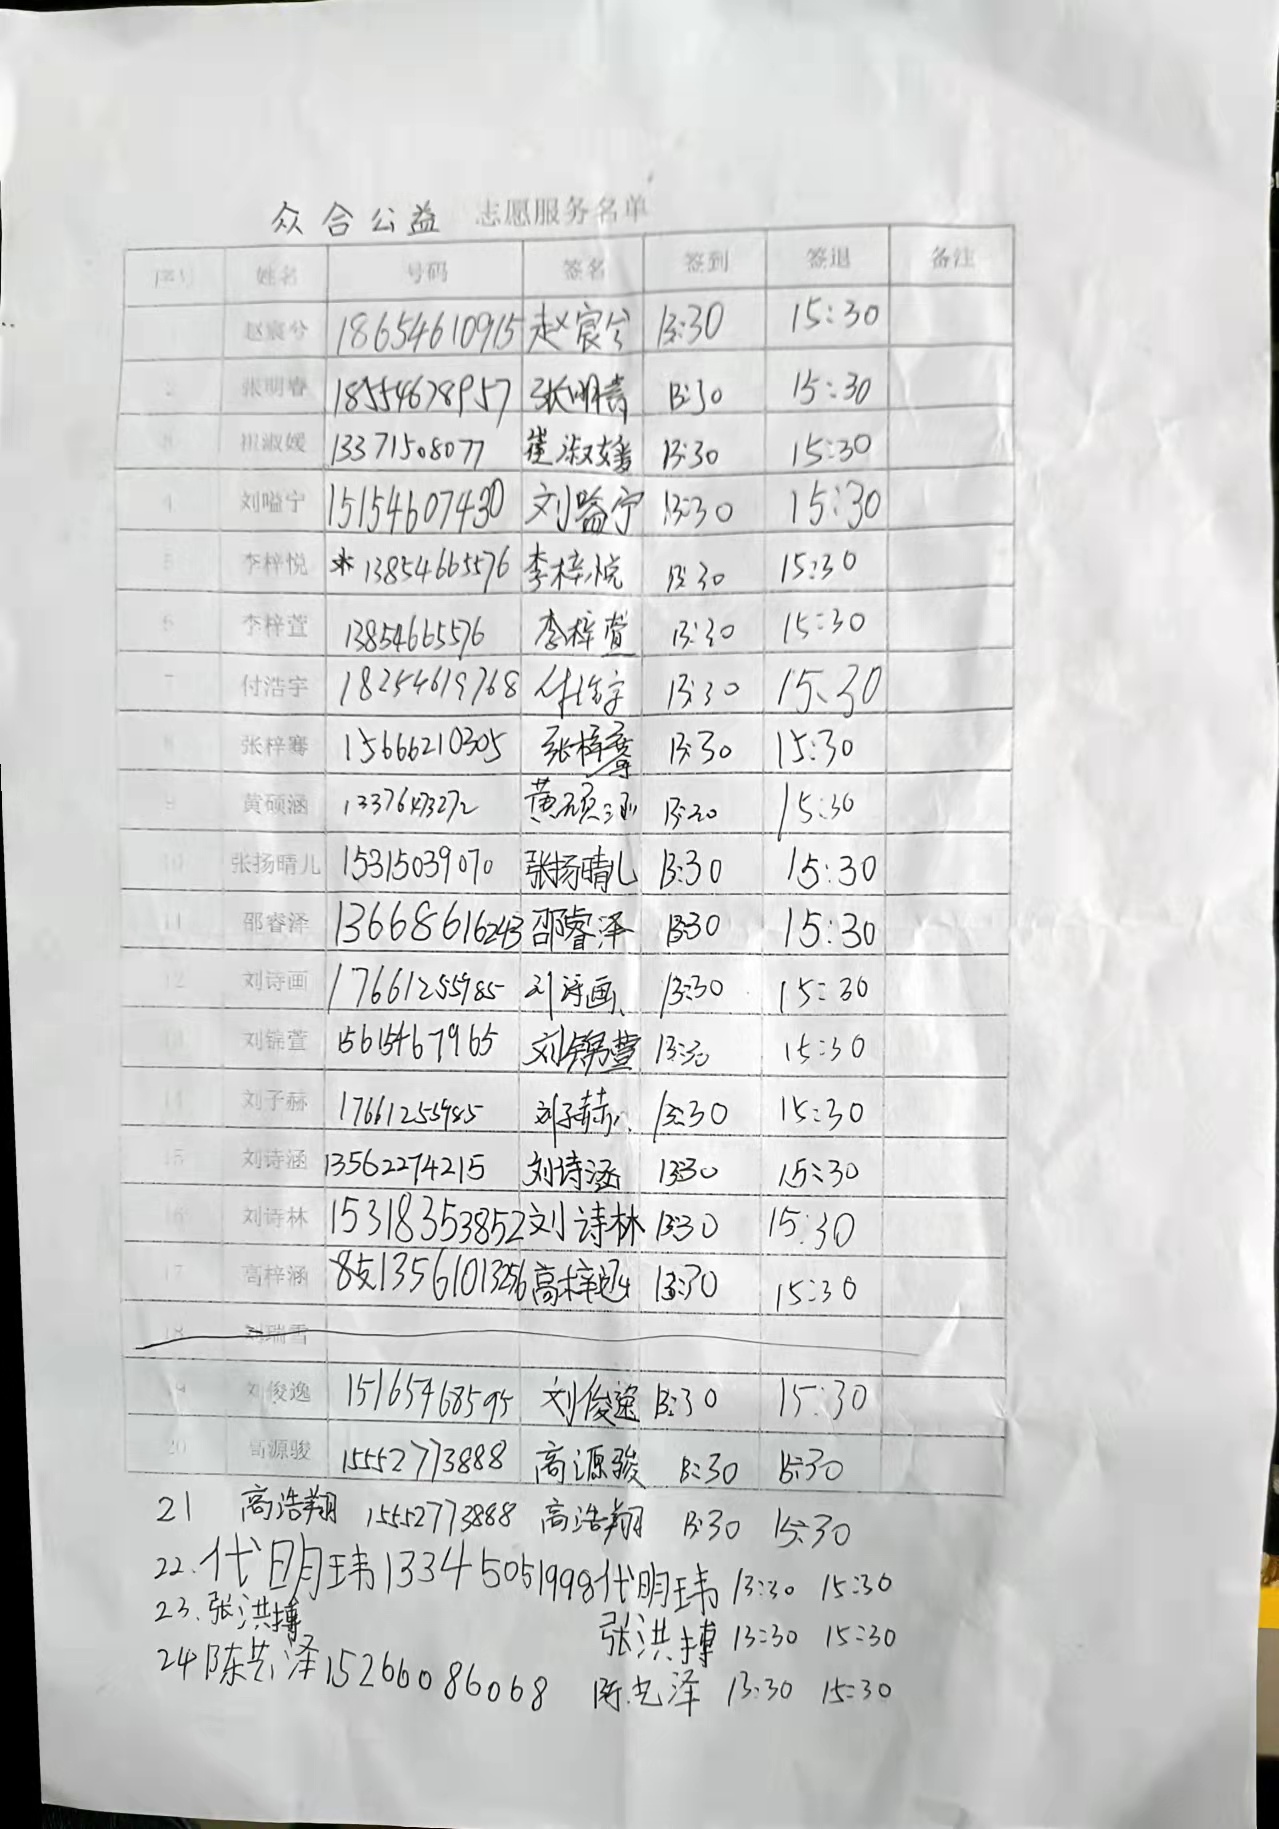 众合公益 志愿服务名单
姓名 号码 签名 签到 签退 备注
赵宸兮 18654610915 赵宸兮 13:30 15:30
2 张明睿 18554678957 张明睿 13:30 15:30
淑媛 13371508077 崔淑媛 13:30 15:30
4 刘嗌宁 15154607430 刘嗌宁 13:30 15:30
5 李梓悦 13854665576 李梓悦 13:30 15:30
6 李梓萱 13854665576 李梓萱 13:30 15:30
7 付浩宇 18254619768 付浩宇 13:30 15:30
8 张梓骞 15666210305 张梓骞 13:30 15:30
9 黄硕涵 13376473272 黄硕涵 13:30 15:30
10 张扬晴儿 15315039070 张扬晴儿 13:30 15:30
11 邵睿泽 13668616243 邵睿泽 13:30 15:30
12 刘诗画 17661255985 刘诗画 13:30 15:30
13 刘锦萱 15615467965 刘锦萱 13:30 15:30
14 刘子赫 17661255985 刘子赫 13:30 15:30
15 刘诗涵 13562274215 刘诗涵 13:30 15:30
16 刘诗林 15318353852 刘诗林 13:30 15:30
17 高梓涵 13561013256 高梓涵 13:30 15:30
18 刘瑞雪
19 刘俊逸 15165468595 刘俊逸 13:30 15:30
20 高源骏 15552773888 高源骏 13:30 15:30
21 高浩翔 15552773888 高浩翔 13:30 15:30
22. 代明玮 13345051998 代明玮 13:30 15:30
23. 张洪搏 张洪搏 13:30 15:30
24 陈艺泽 15266086068 陈艺泽 13:30 15:30